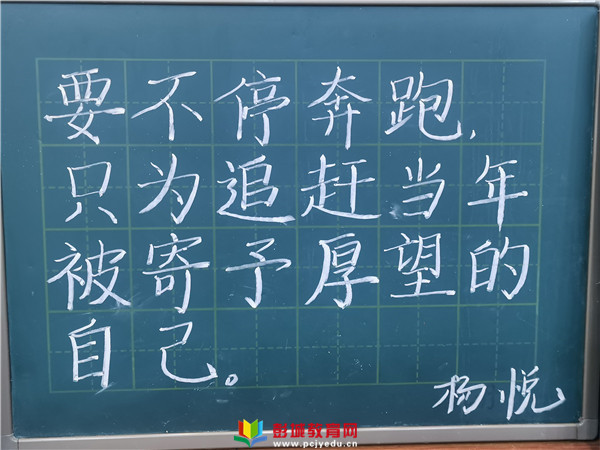 要不停奔跑,
只为追赶当年
被寄予厚望的
自己。
杨悦
彭城教育网
www.pcjyedu.cn